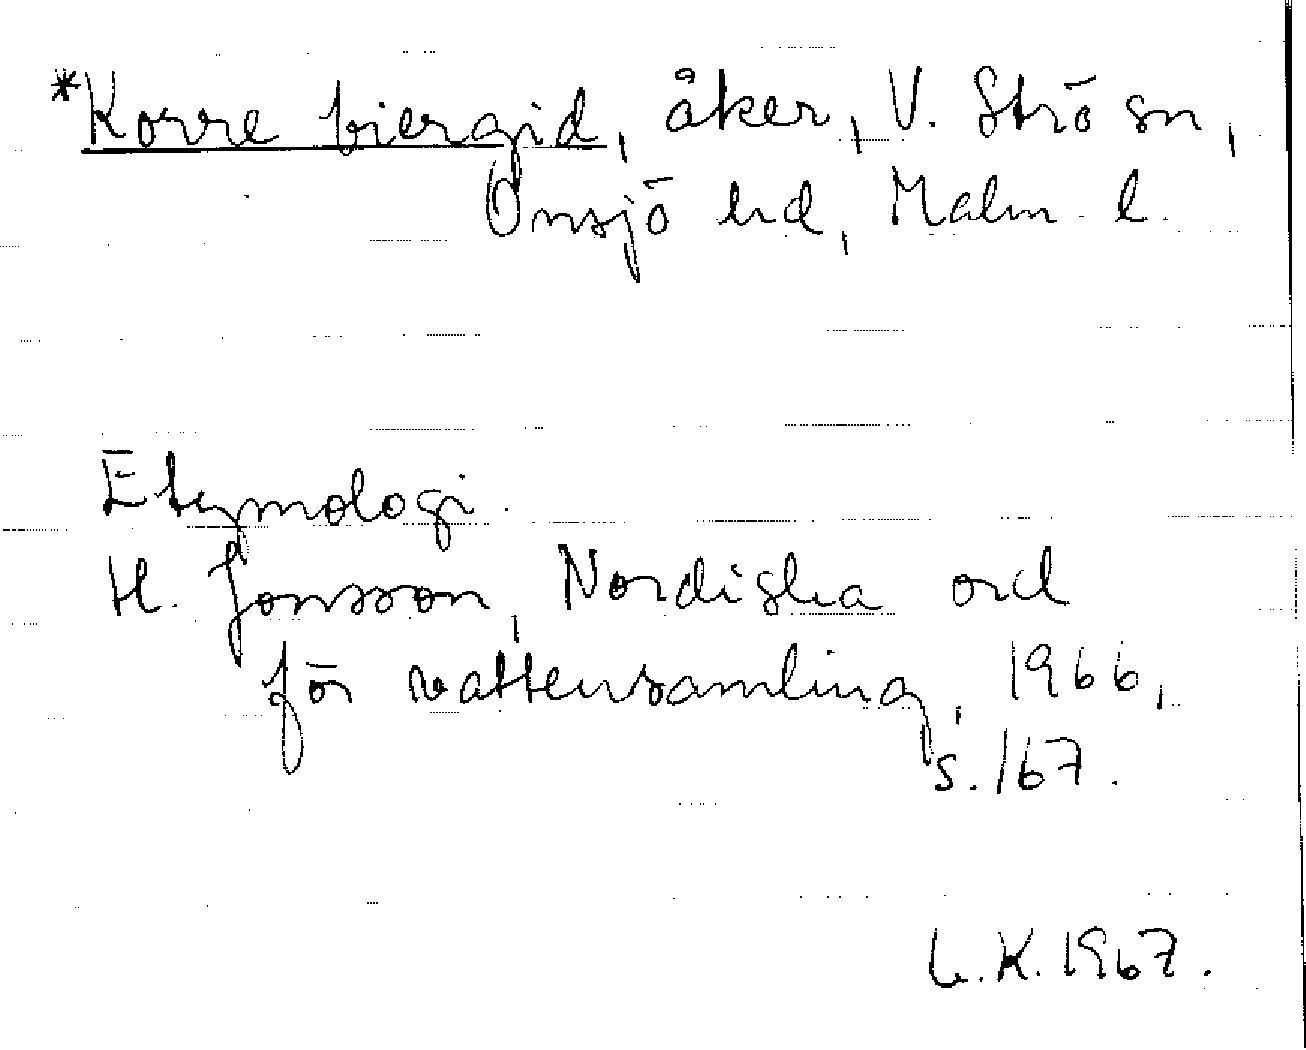 *Korre biergid, åker, V. Strö sn,
Onsjö hd, Malm. l.
Etymologi.
H. Jonsson, Nordiska ord
för vattensamling, 1966,
s. 167.
L.K. 1967.